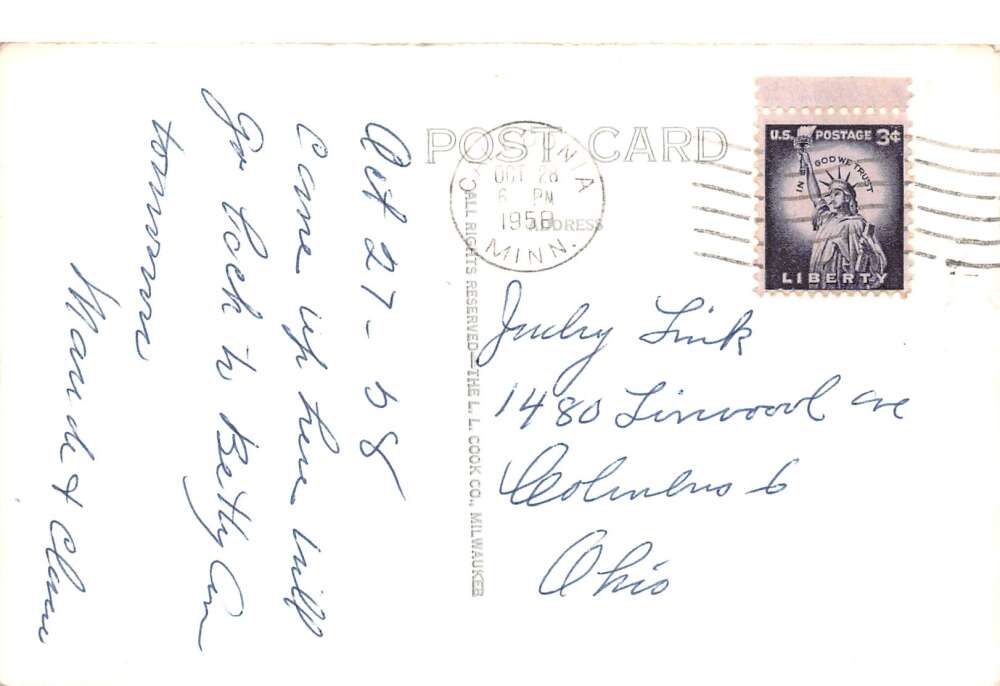 POST CARD
ADDRESS
OCT 28
6 PM
1958
MINN.
U.S. POSTAGE 3¢
IN GOD WE TRUST
LIBERTY
Oct 27-58
Came up here will
go back to Betty Ann
tomorrow
Maude &
ALL RIGHTS RESERVED—THE L. L. COOK CO., MILWAUKEE
Judy Link
1480 Linwood ave
Columbus 6
Ohio